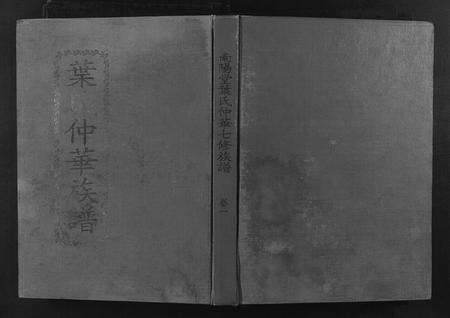 葉
仲華族譜
南陽堂葉氏仲華七修族譜
卷一